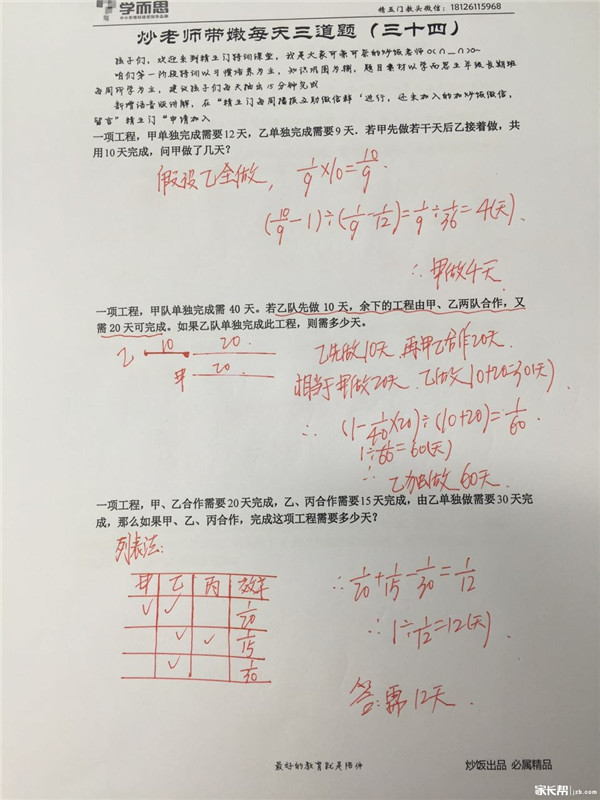 学而思
精五门教头微信：18126115968
炒老师带嫩每天三道题（三十四）
孩子们，欢迎来到精五门特训课堂，我是大家可亲可亲的炒饭老师
咱们第一阶段特训以习惯培养为主，知识巩固为辅，题目素材以学而思五年级长期班
每周所学为主，建议孩子们每天抽出15分钟完成
新增语音版讲解，在“精五门每周播报互动微信群‘进行，还未加入的加炒饭微信，
留言”精五门“申请加入
一项工程，甲单独完成需要12天，乙单独完成需要9天．若甲先做若干天后乙接着做，共
用10天完成，问甲做了几天?
假设乙全做， 1/9×10=10/9
(10/9-1)÷(1/9-1/12)=1/9÷1/36=4(天)
∴甲做4天．
一项工程，甲队单独完成需 40 天。若乙队先做 10 天，余下的工程由甲、乙两队合作，又
需 20 天可完成。如果乙队单独完成此工程，则需多少天。
乙 10 20
甲 20
乙先做10天，再甲乙合作20天．
相当于甲做20天．乙做 10+20=30(天)
∴ (1-1/40×20)÷(10+20)=1/60
1÷1/60=60(天)
∴ 乙单独做 60天．
一项工程，甲、乙合作需要20天完成，乙、丙合作需要15天完成，由乙单独做需要30天完
成，那么如果甲、乙、丙合作，完成这项工程需要多少天?
列表法:
甲 乙 丙 效率
✓ ✓ 1/20
✓ ✓ 1/15
✓ 1/30
∴ 1/20+1/15-1/30=1/12
∴ 1÷1/12=12(天)
答:需12天．
最好的教育就是陪伴
炒饭出品 必属精品
家长帮 jzb.com